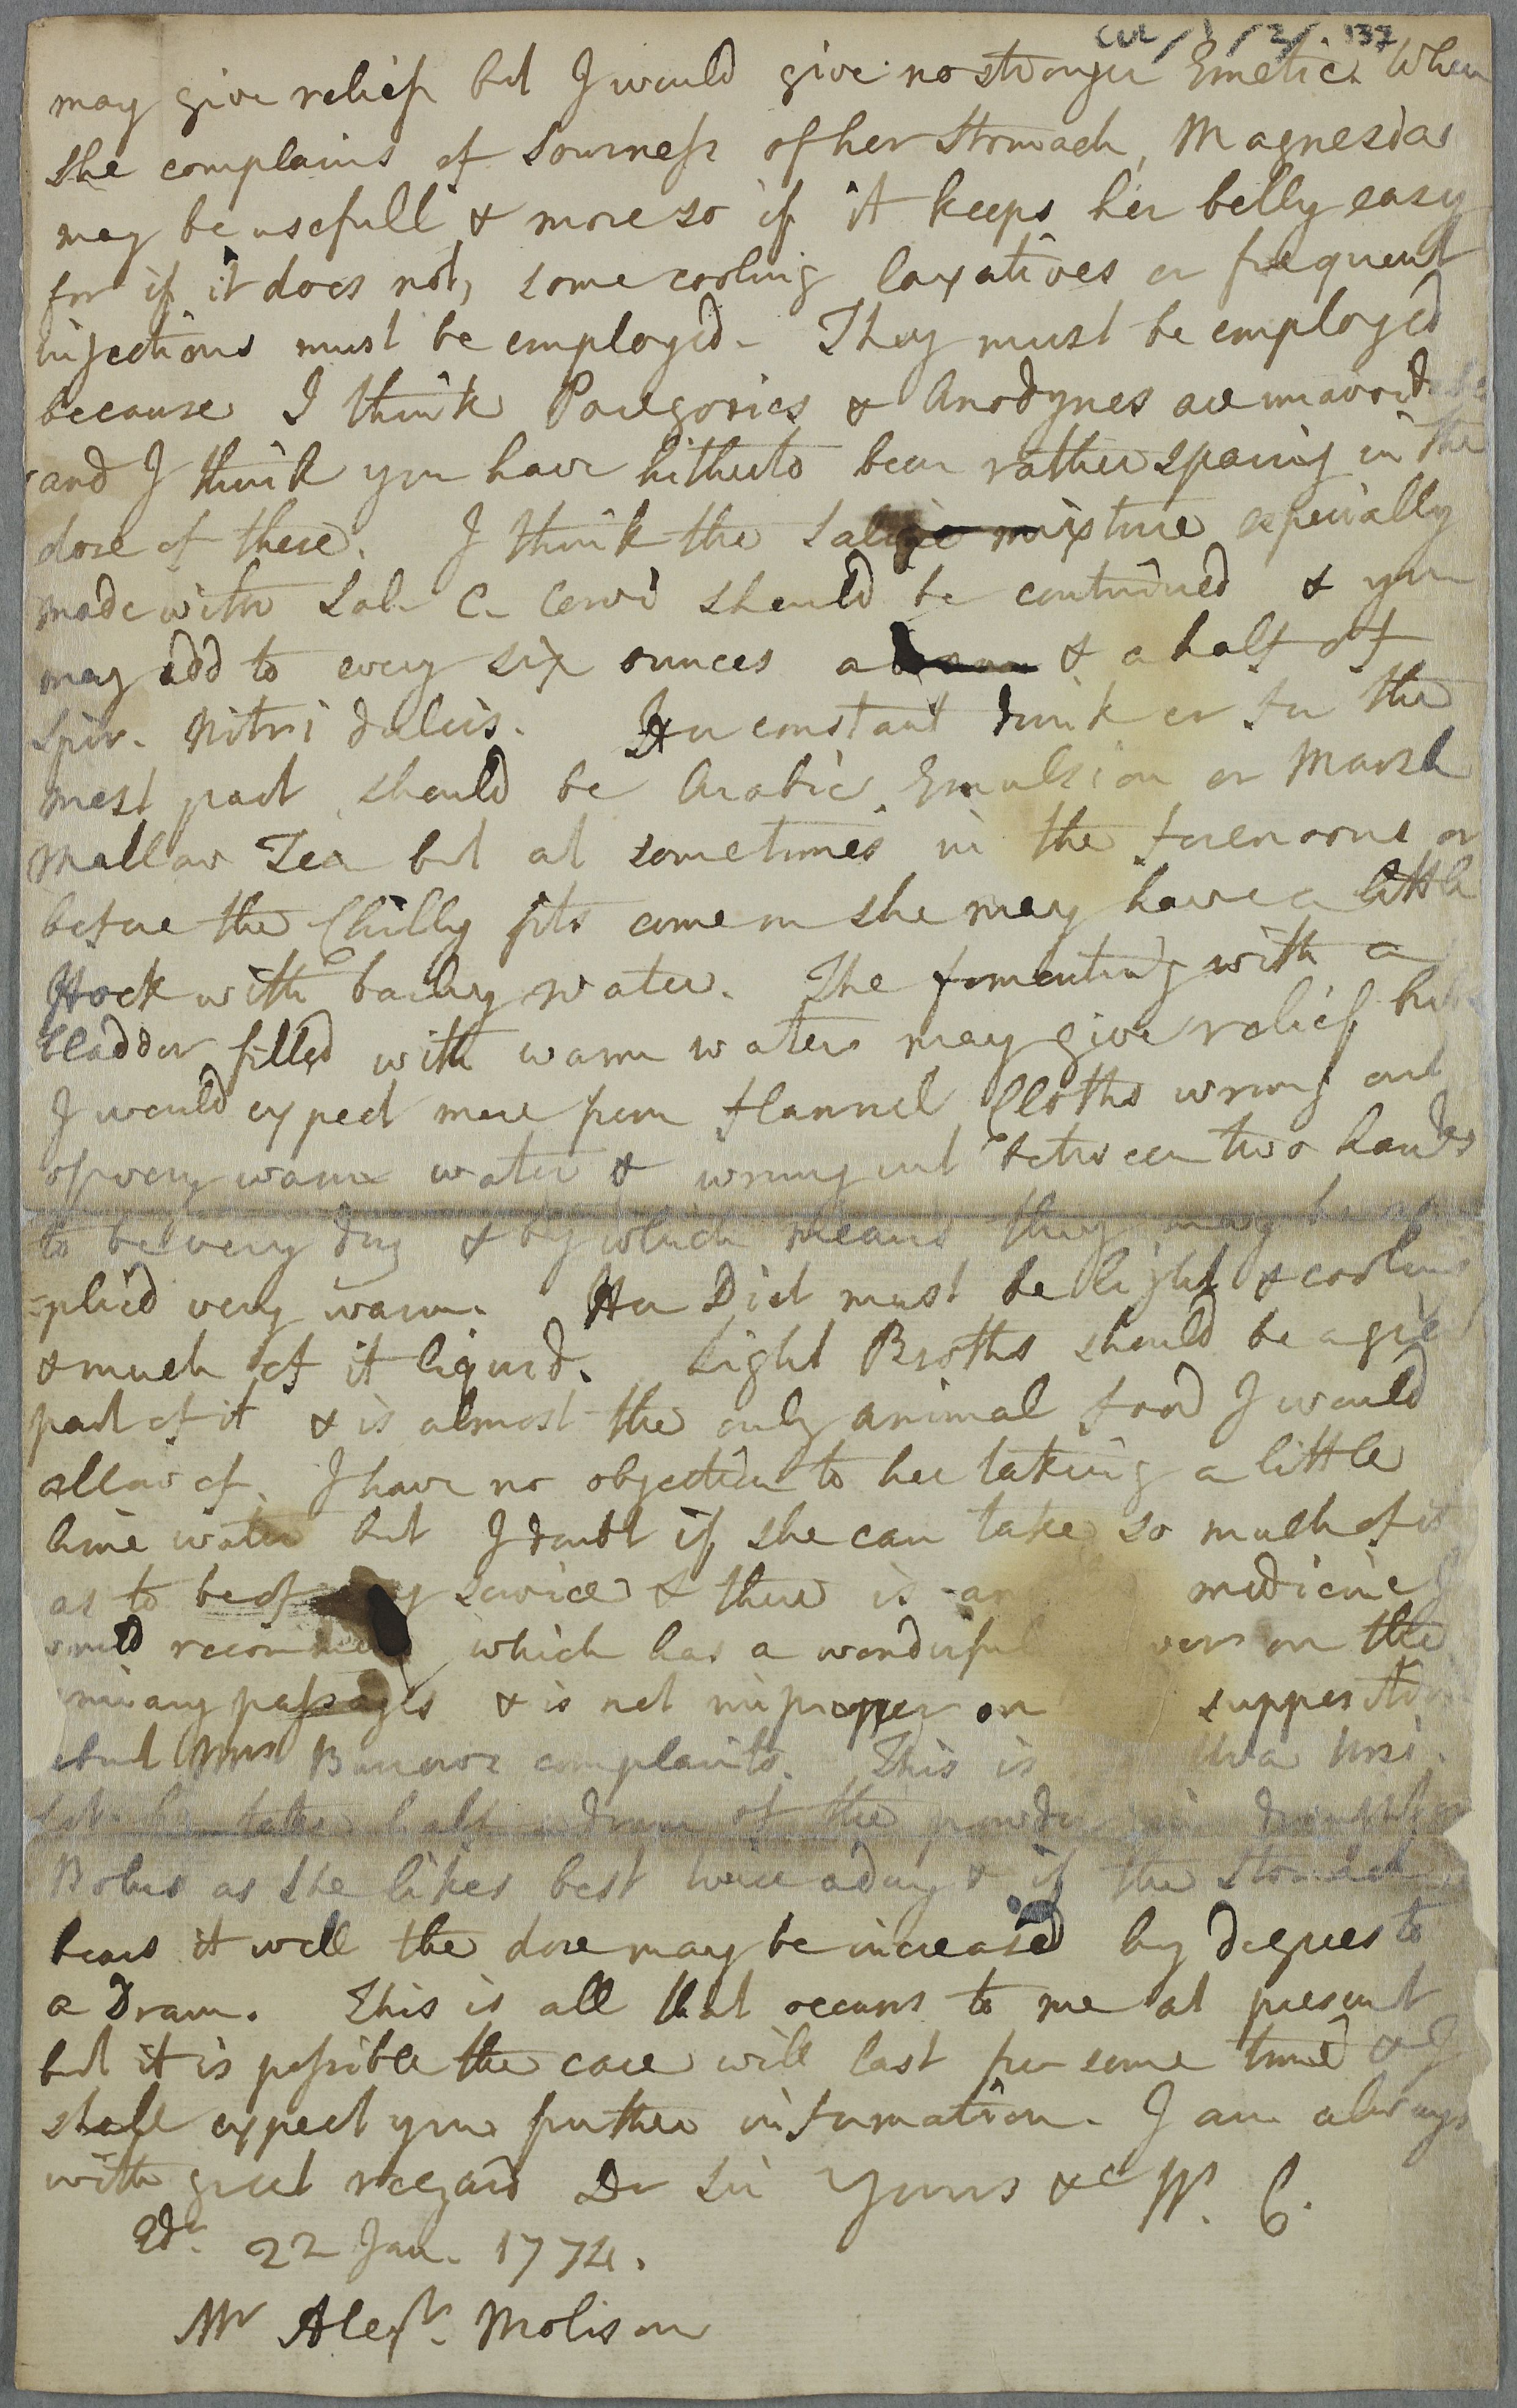 CUL/1/2/137
may give relief but I would give no stronger Emetic. When
she complains of Sourness of her Stomach, Magnesia
may be usefull & more so if it keeps her belly easy
for if it does not, some cooling laxatives or frequent
injections must be employed. They must be employed
because I think Paregorics & Anodynes are unavoidable
and I think you have hitherto been rather sparing in the
dose of these. I think the Saline mixture especially
made with Sal. C. Cervi should be continued & you
may add to every six ounces a dram & a half of
Spir. Nitri dulcis. Her constant drink or for the
most part should be Arabic Emulsion or Marsh
Mallow Tea but at sometimes in the forenoons or
before the Chilly fits come on she may have a little
Hock with barley water. The fomenting with a
bladder filled with warm water may give relief but
I would expect more from flannel Cloths wrung out
of very warm water & wrung out between two hands
to be very dry & by which means they may be ap
=plied very warm. Her Diet must be light & cooling
& much of it liquid. Light Broths should be a great
part of it & is almost the only animal food I would
allow of. I have no objection to her taking a little
lime water but I doubt if she can take so much of it
as to be of any service & there is an medicine I
would recommend which has a wonderful over on the
urinary passages & is not improper on supposition
about Mrs complaints. This is Uva Ursi.
Let her take half a dram of the powder in draught or
Bolus as she likes best twice a day & if the Stomach
bears it well the dose may be increased by degrees to
a Dram. This is all that occurs to me at present
but it is possible the case will last for some time & I
shall expect your further information. I am always
with great regard Dr Sir Yours &c W. C.
Edr. 22 Jan. 1774.
Mr Alexr. Molison